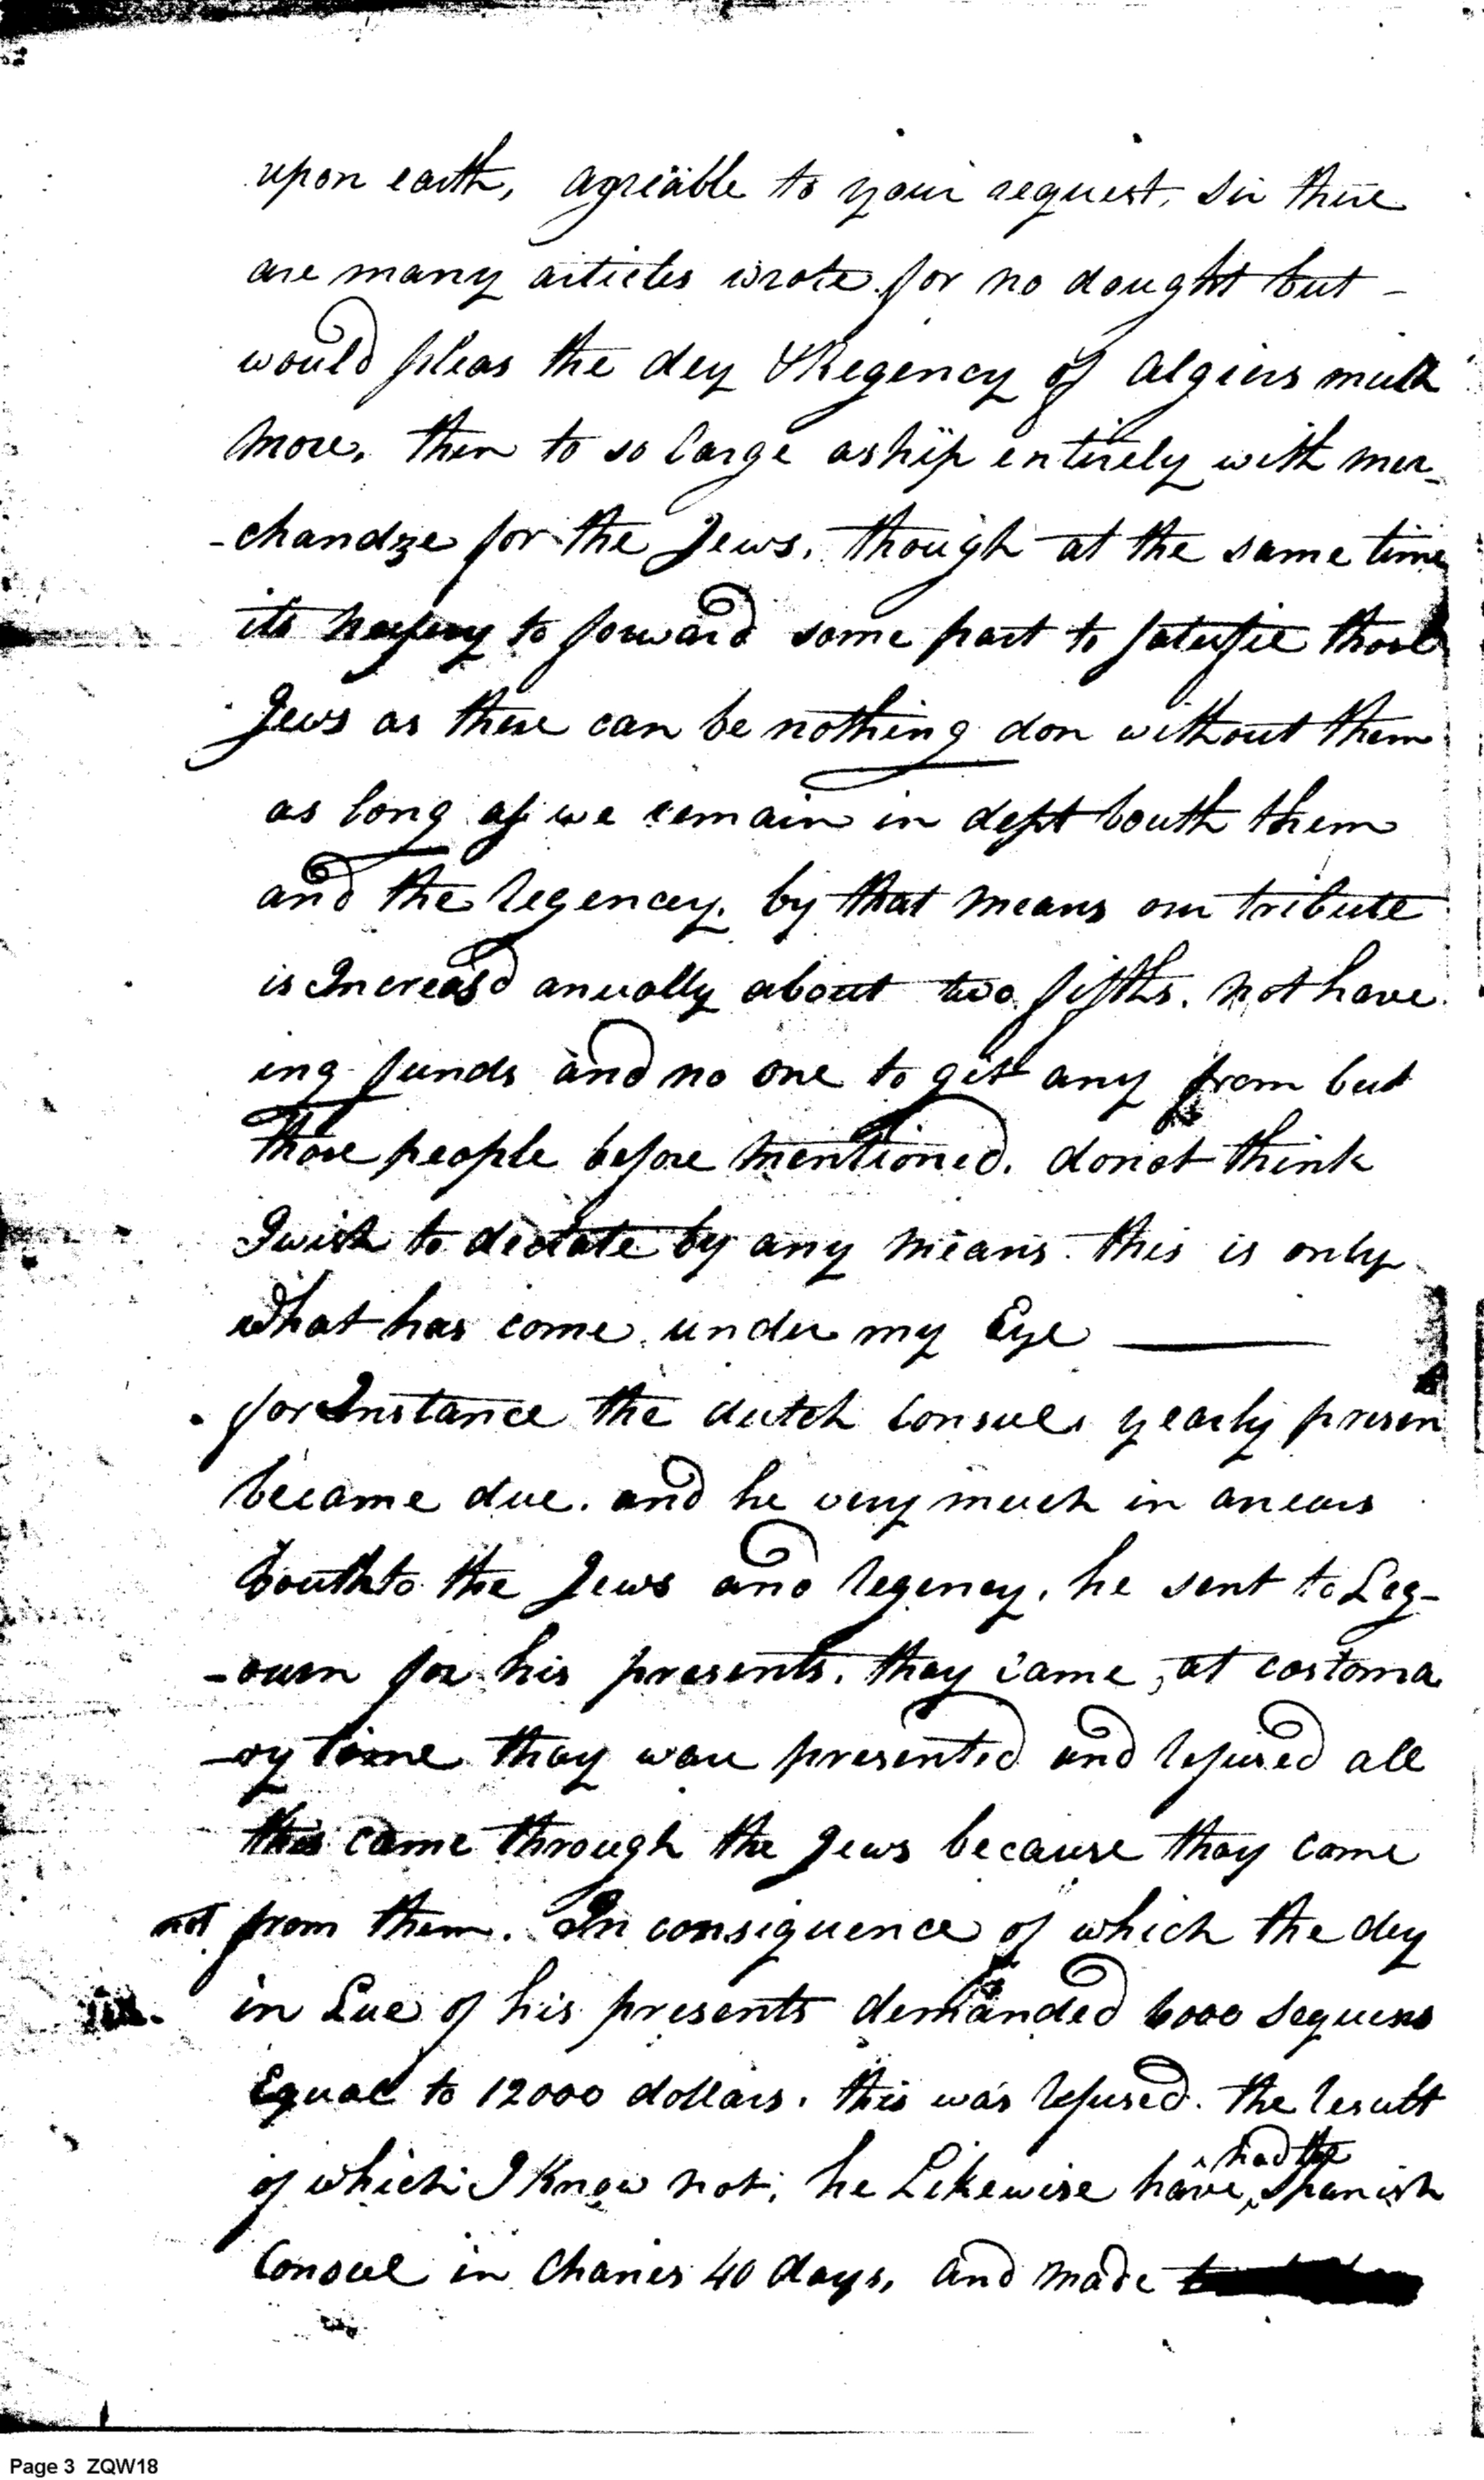 upon earth, agreable to your request, Sir there
are many articles wrote for no dought but -
would pleas the dey & Regency of Algiers much
more, then to so large aship entirely with mer-
-chandze for the Jews, though at the same time
its to forward some part to satisfie those
Jews as there can be nothing don without them
as long as we remain in dept bouth them
and the regency. by that means our tribute
is Increasd anually about two fifths. not have
ing funds and no one to git any from but
those people before mentioned. donot think
I wish to dictate by any means this is only
what has come under my Eye ———
for Instance the dutch Consuls yearly presen
became due. and he very much in arrears
bouth to the Jews and regency, he sent to Leg-
-ourn for his presents. thay came, at costoma
-ry time thay ware presented and refused all
this came through the Jews because thay came
not from them. In consiquence of which the dey
in Lue of his presents demanded 6000 sequens
Equal to 12000 dollars. this was refused. the result
of which I know not, he Likewise have had the Spanish
Consul in Chanes 40 days, and made
Page 3 ZQW18